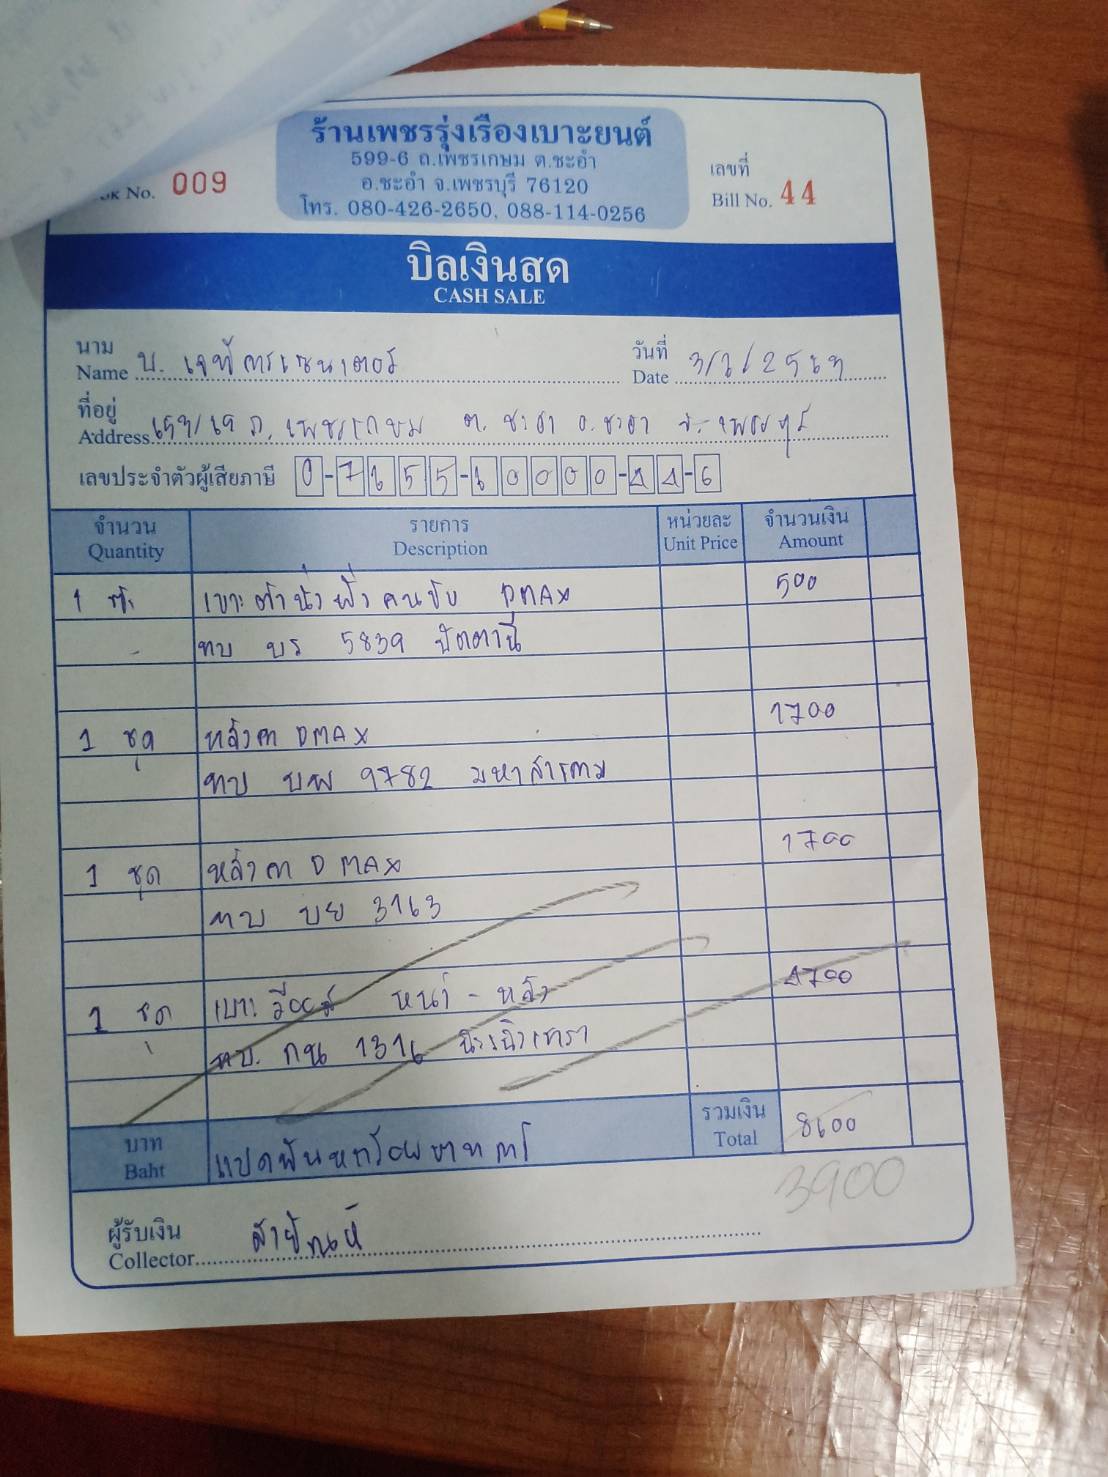 ร้านเพชรรุ่งเรืองเบาะยนต์
599-6 ถ.เพชรเกษม ต.ชะอำ
อ.ชะอำ จ.เพชรบุรี 76120
โทร. 080-426-2650, 088-114-0256
No. 009
เลขที่
Bill No. 44
บิลเงินสด
CASH SALE
นาม
Name บ. เจพีคาร์เซนเตอร์
วันที่
Date
ที่อยู่
Address ถ. เพชรเกษม ต. ชะอำ อ. ชะอำ จ. เพชรบุรี
เลขประจำตัวผู้เสียภาษี
จำนวน รายการ หน่วยละ จำนวนเงิน
Quantity Description Unit Price Amount
1 เบาะตัวนั่งฝั่งคนขับ DMAX 500
ทบ บร 5839 ปัตตานี
1 ชุด หลังคา DMAX 1700
ทบ บพ 9782 มหาสารคาม
1 ชุด หลังคา DMAX 1700
ทบ บย 3163
1 ชุด เบาะวีออส หน้า - หลัง 4700
ทบ. กน 1316 ฉะเชิงเทรา
บาท
Baht แปดพันหกร้อยบาท
รวมเงิน
Total 8600
3900
ผู้รับเงิน
Collector สายัณห์